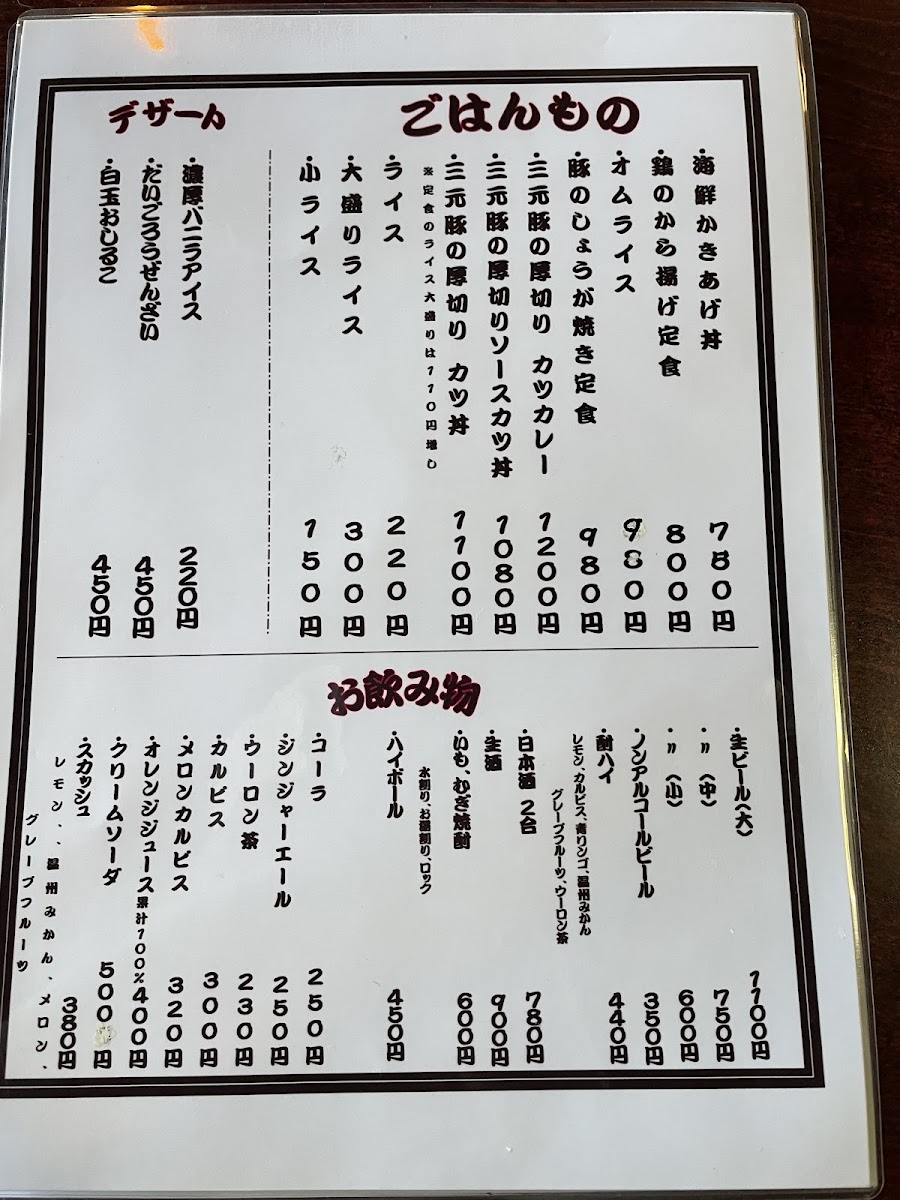 ごはんもの
・海鮮かきあげ丼 780円
・鶏のから揚げ定食 800円
・オムライス 980円
・豚のしょうが焼き定食 980円
・三元豚の厚切り カツカレー 1200円
・三元豚の厚切りソースカツ丼 1080円
・三元豚の厚切り カツ丼 1100円
※定食のライス大盛りは110円増し
・ライス 220円
・大盛りライス 300円
・小ライス 150円
デザート
・濃厚バニラアイス 220円
・だいごろうぜんざい 450円
・白玉おしるこ 450円
お飲み物
・生ビール(大) 1100円
・〃(中) 750円
・〃(小) 600円
・ノンアルコールビール 350円
・酎ハイ 440円
レモン、カルピス、青りんご、温州みかん
グレープフルーツ、ウーロン茶
・日本酒 2合 780円
・生酒 900円
・いも、むぎ焼酎 600円
水割り、お湯割り、ロック
・ハイボール 450円
・コーラ 250円
・ジンジャーエール 250円
・ウーロン茶 230円
・カルピス 300円
・メロンカルピス 320円
・オレンジジュース果汁100% 400円
・クリームソーダ 500円
・スカッシュ 380円
レモン、温州みかん、メロン、
グレープフルーツ